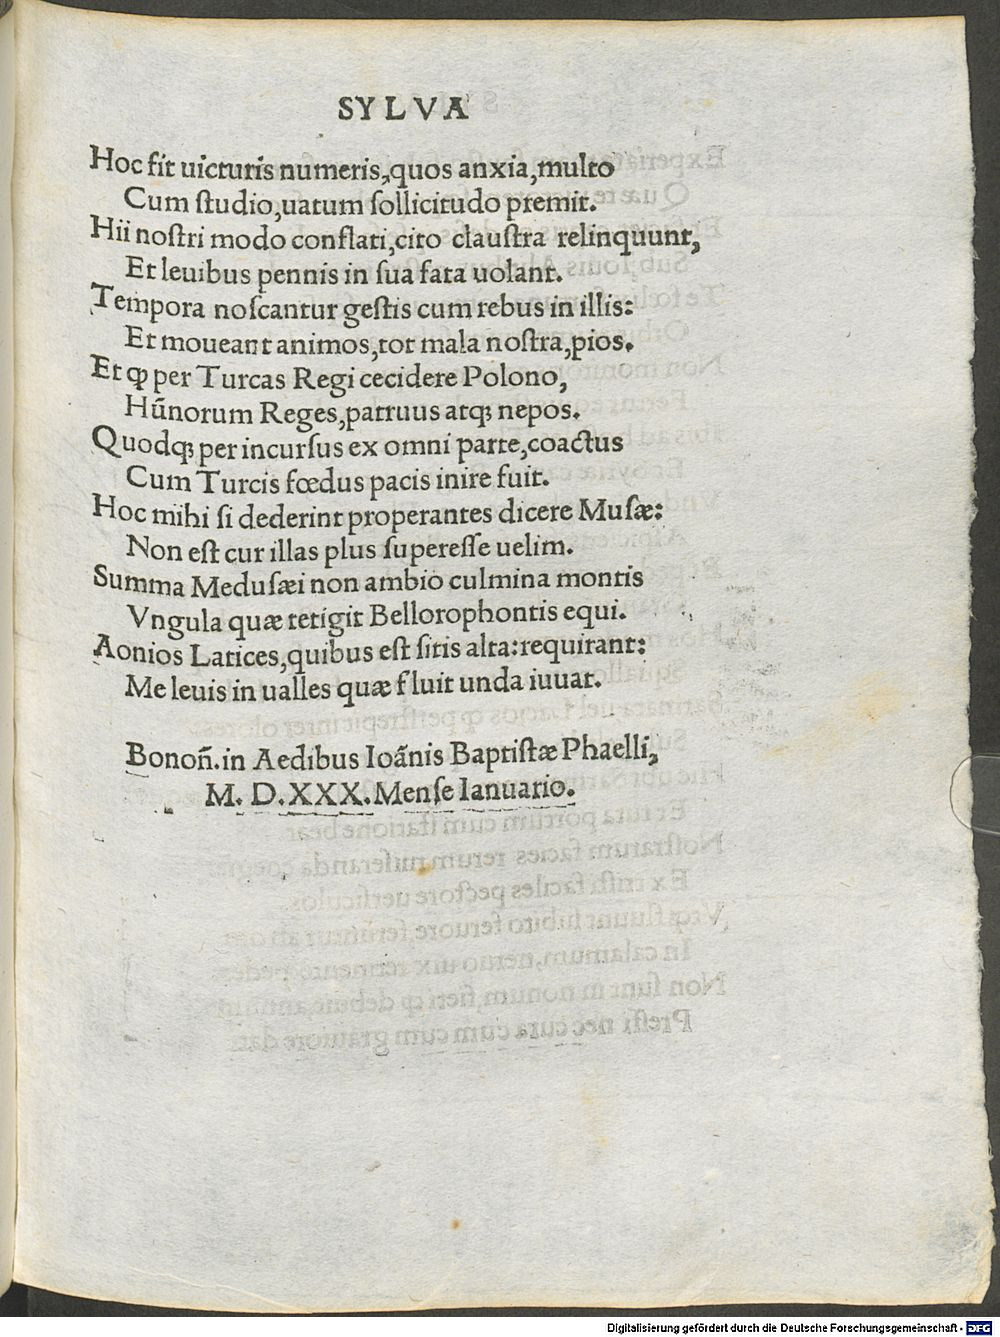 SYLVA
Hoc fit uicturis numeris, quos anxia, multo
Cum ſtudio, uatum ſollicitudo premit.
Hii noſtri modo conflati, cito clauſtra relinquunt,
Et leuibus pennis in ſua fata uolant.
Tempora noſcantur geſtis cum rebus in illis:
Et moueant animos, tot mala noſtra, pios.
Et ꝙ per Turcas Regi cecidere Polono,
Hūnorum Reges, patruus atqꝫ nepos.
Quodqꝫ per incurſus ex omni parte, coactus
Cum Turcis fœdus pacis inire fuit.
Hoc mihi ſi dederint properantes dicere Muſæ:
Non eſt cur illas plus ſupereſſe uelim.
Summa Meduſæi non ambio culmina montis
Vngula quæ tetigit Bellorophontis equi.
Aonios Latices, quibus eſt ſitis alta: requirant:
Me leuis in ualles quæ fluit unda iuuat.
Bonoñ. in Aedibus Ioãnis Baptiſtæ Phaelli,
M. D. XXX. Menſe Ianuario.
Digitalisierung gefördert durch die Deutsche Forschungsgemeinschaft - DFG